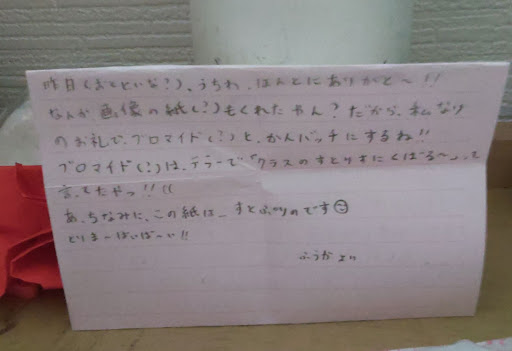 昨日(おとといな?)、うちわ、ほんとにありがと〜!!
なんか画像の紙(?)もくれたやん?だから、私なり
のお礼で、ブロマイド(?)と、かんバッチにするね!!
ブロマイド(?)は、テラーで「クラスのすとりすにくばる〜」って
言ってたやつ!!((
あ、ちなみに、この紙は、すとぷりのです☺
とりまーばいばーい!!
ふうかより